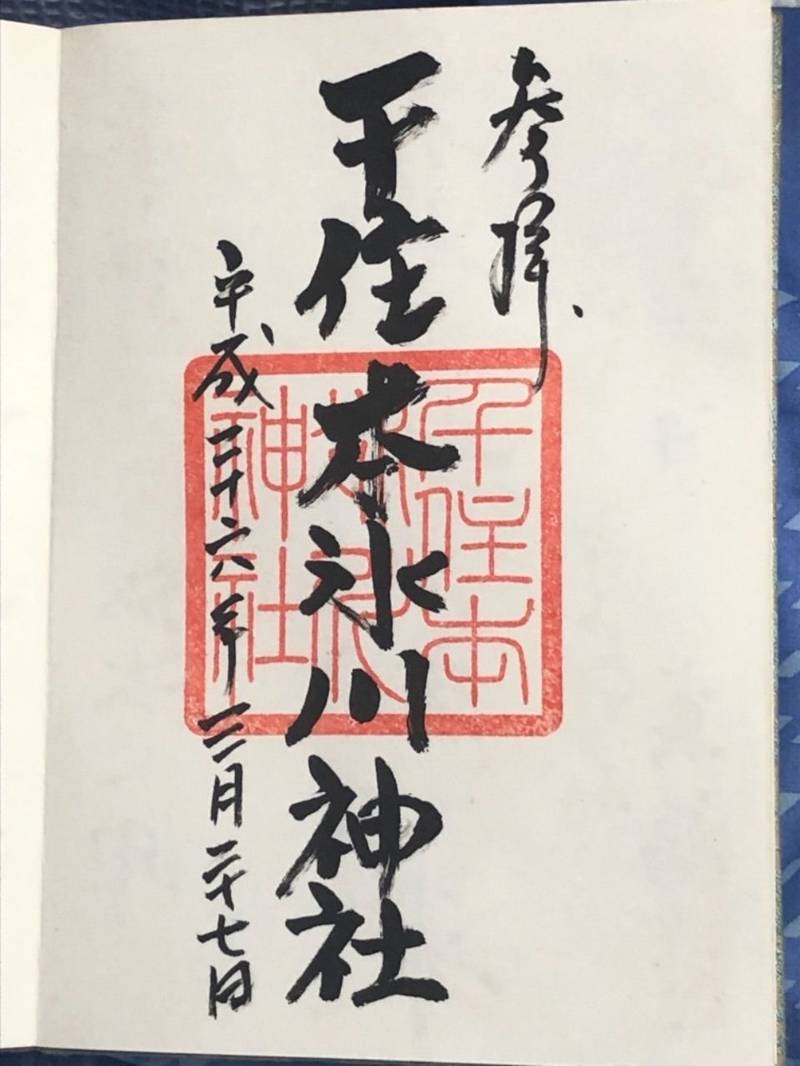 参拝
千住本氷川神社
平成二十六年三月二十七日
千住本
神社